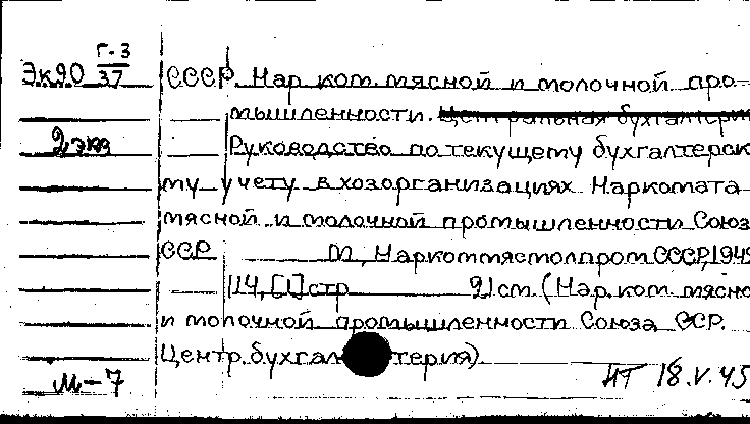 Эк90 Г-3/37
СССР. Нар. ком. мясной и молочной про-
мышленности. Центральная бухгалтерия
2 экз
Руководство по текущему бухгалтерск
му учету в хозорганизациях Наркомата
мясной и молочной промышленности Союз
ССР М, Наркоммясомолпром СССР, 194
114, [1] стр 21 см. (Нар. ком. мясно
и молочной промышленности Союза ССР.
Центр. бухгалтерия)
М-7
НТ 18.V.45